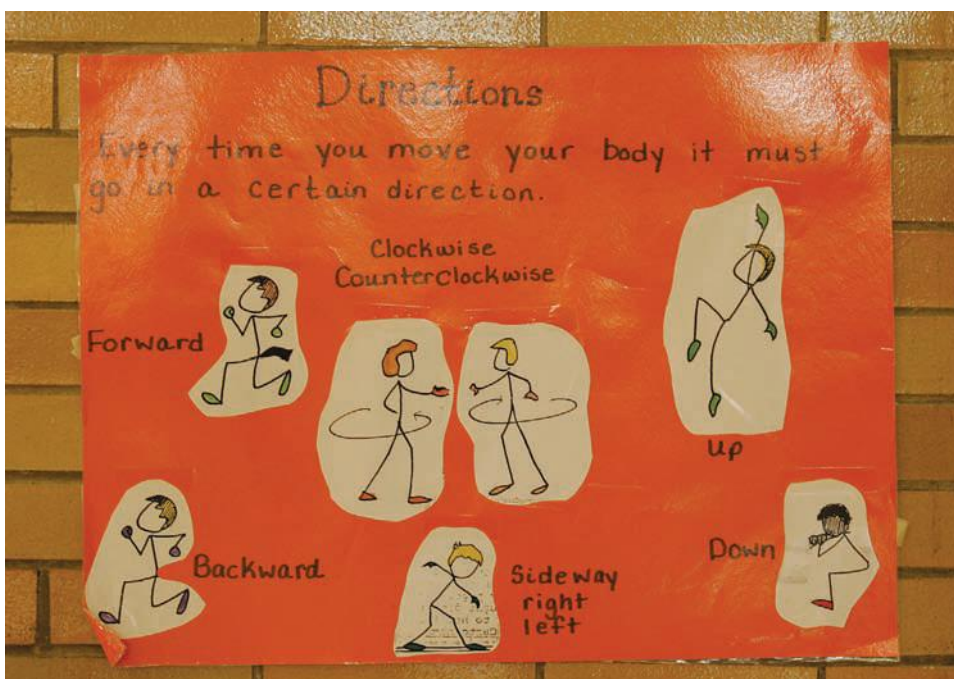 Directions
Every time you move your body it must
go in a certain direction.
Clockwise
Counterclockwise
Forward
Up
Backward
Sideway
right
left
Down